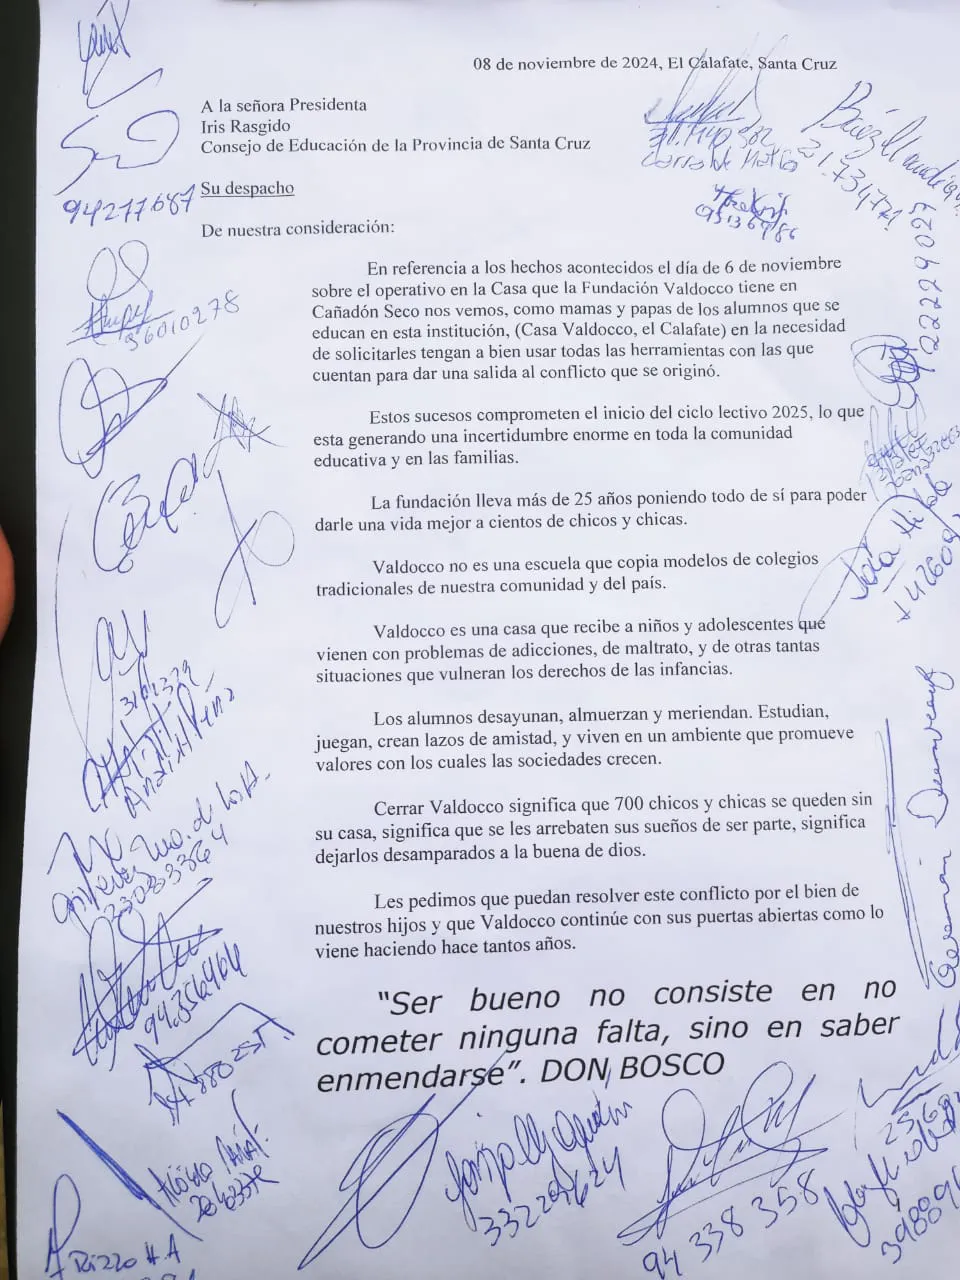 08 de noviembre de 2024, El Calafate, Santa Cruz
A la señora Presidenta
Iris Rasgido
Consejo de Educación de la Provincia de Santa Cruz
Su despacho
De nuestra consideración:
En referencia a los hechos acontecidos el día de 6 de noviembre
sobre el operativo en la Casa que la Fundación Valdocco tiene en
Cañadón Seco nos vemos, como mamas y papas de los alumnos que se
educan en esta institución, (Casa Valdocco, el Calafate) en la necesidad
de solicitarles tengan a bien usar todas las herramientas con las que
cuentan para dar una salida al conflicto que se originó.
Estos sucesos comprometen el inicio del ciclo lectivo 2025, lo que
esta generando una incertidumbre enorme en toda la comunidad
educativa y en las familias.
La fundación lleva más de 25 años poniendo todo de sí para poder
darle una vida mejor a cientos de chicos y chicas.
Valdocco no es una escuela que copia modelos de colegios
tradicionales de nuestra comunidad y del país.
Valdocco es una casa que recibe a niños y adolescentes que
vienen con problemas de adicciones, de maltrato, y de otras tantas
situaciones que vulneran los derechos de las infancias.
Los alumnos desayunan, almuerzan y meriendan. Estudian,
juegan, crean lazos de amistad, y viven en un ambiente que promueve
valores con los cuales las sociedades crecen.
Cerrar Valdocco significa que 700 chicos y chicas se queden sin
su casa, significa que se les arrebaten sus sueños de ser parte, significa
dejarlos desamparados a la buena de dios.
Les pedimos que puedan resolver este conflicto por el bien de
nuestros hijos y que Valdocco continúe con sus puertas abiertas como lo
viene haciendo hace tantos años.
“Ser bueno no consiste en no
cometer ninguna falta, sino en saber
enmendarse”. DON BOSCO
94277687
36010278
94356464
33229624
94 338 358
Rizzo H.A